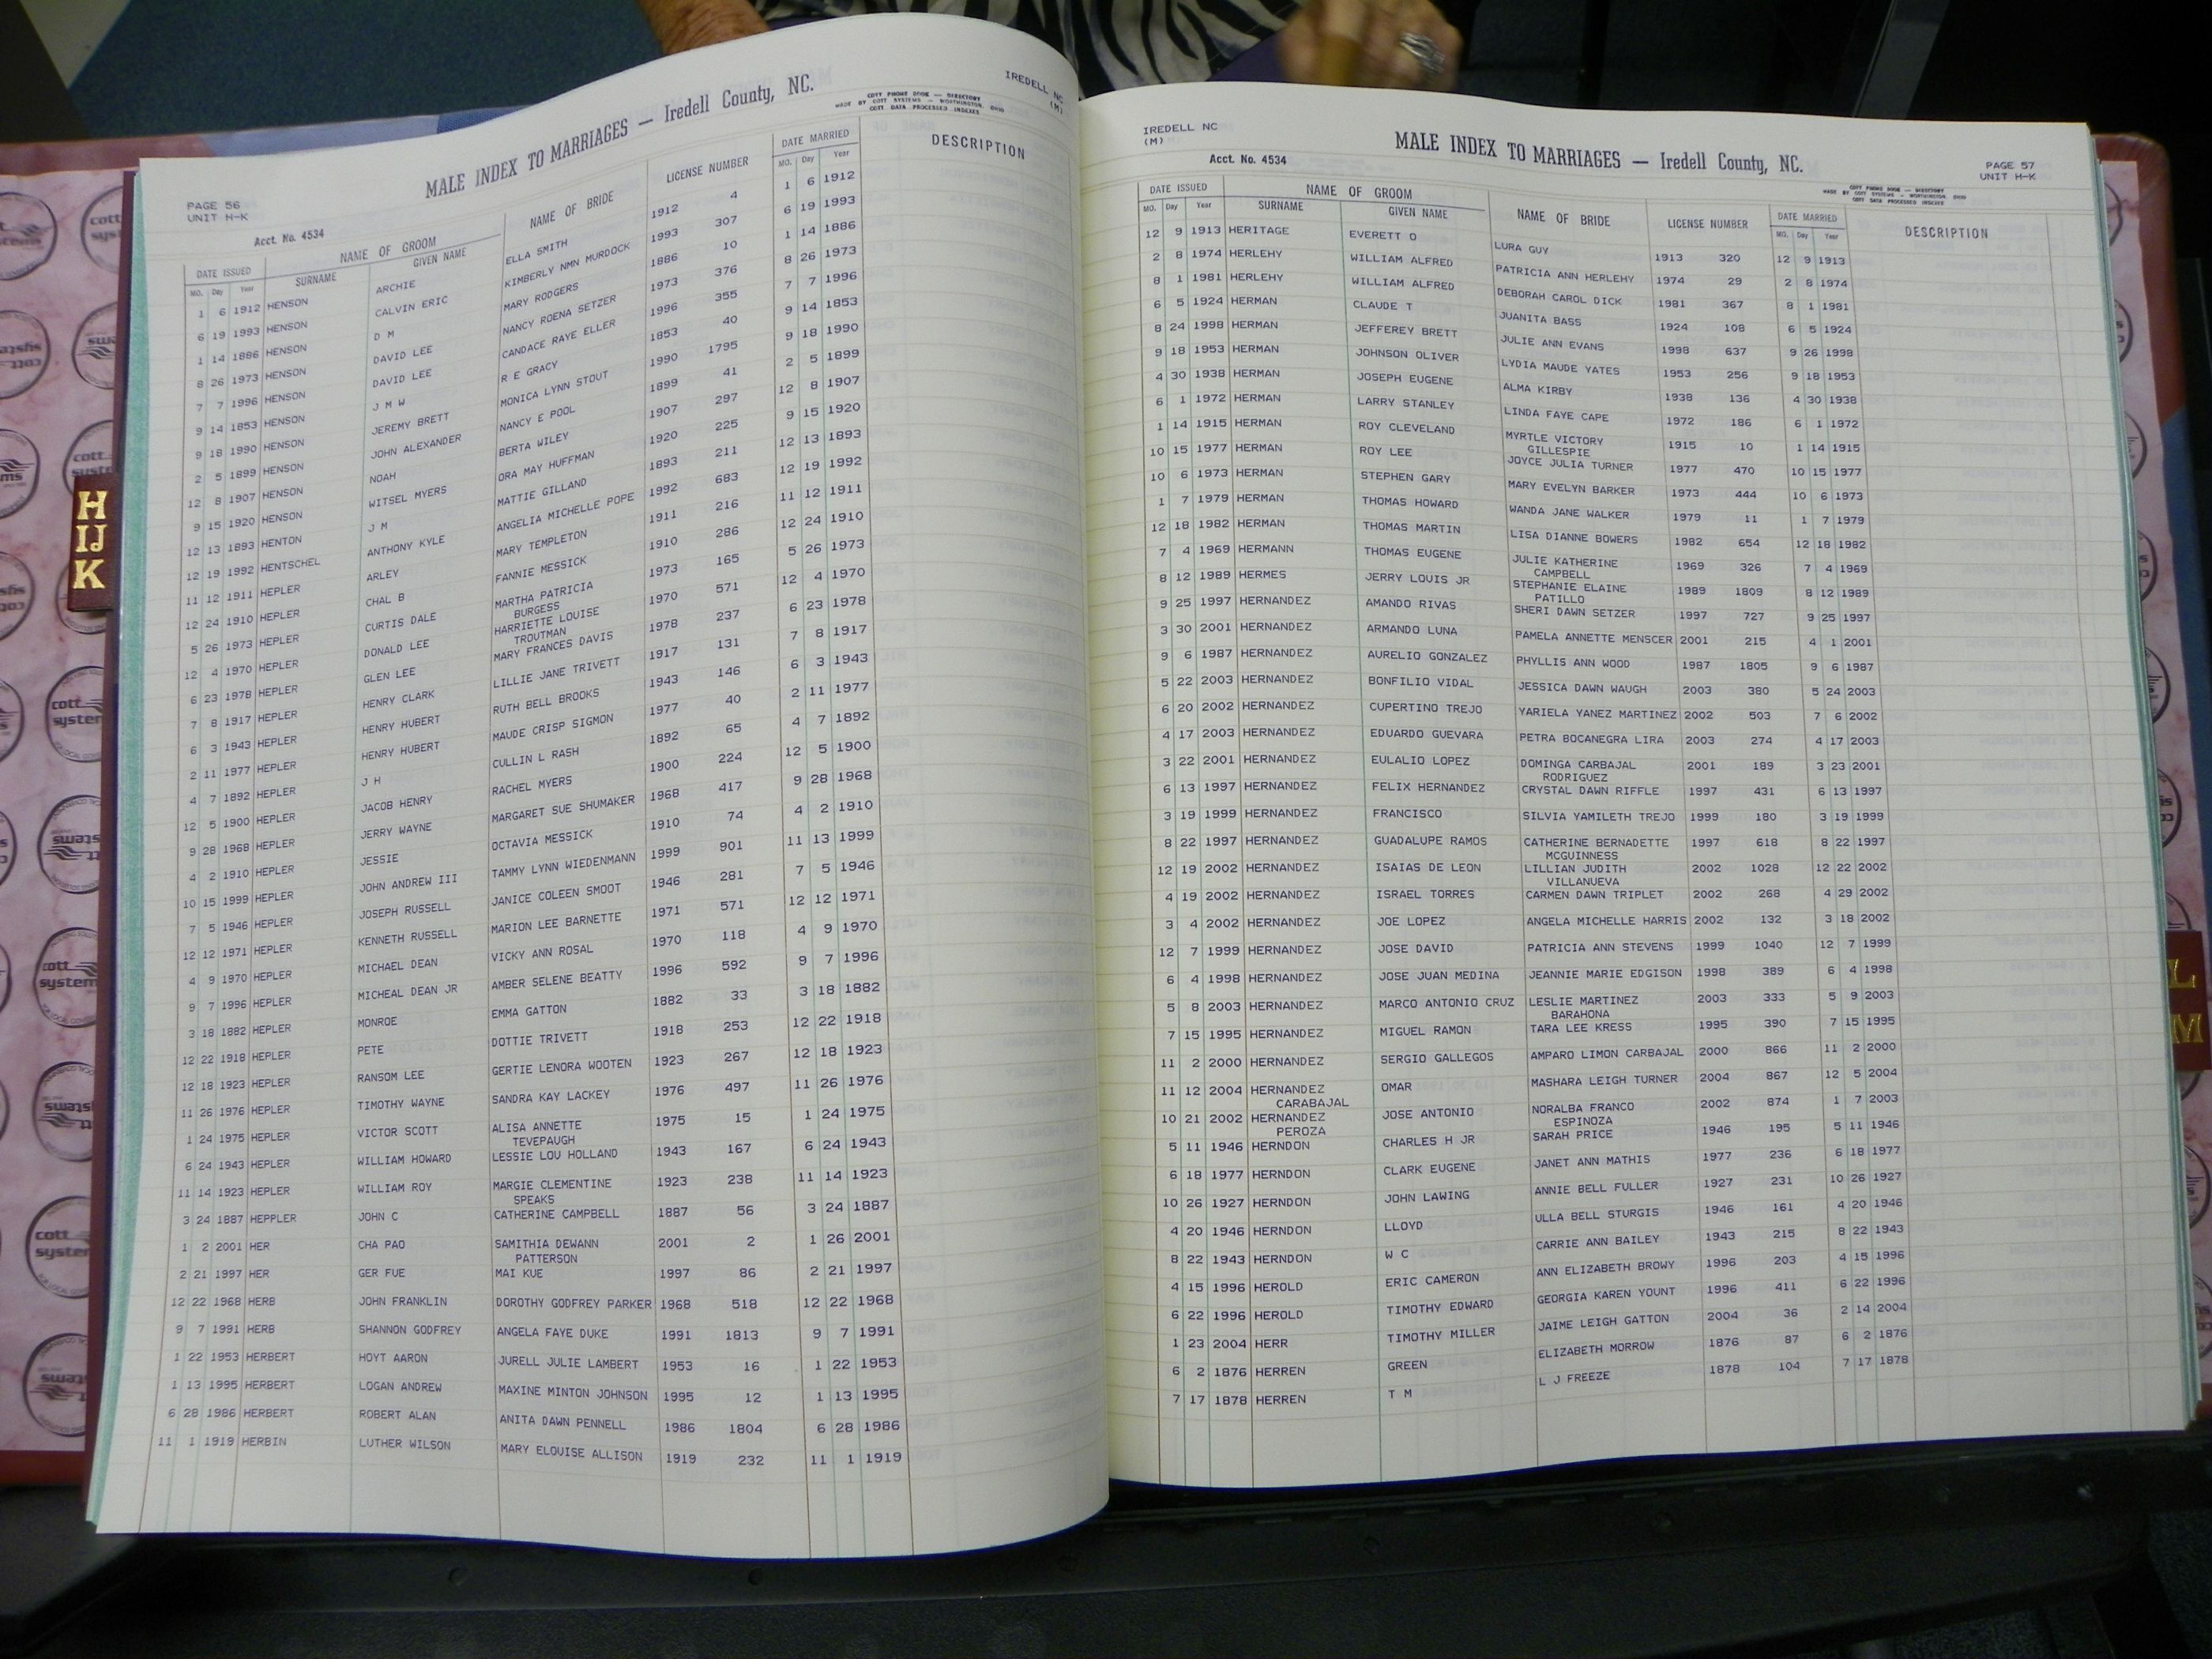 PAGE 56
UNIT H-K
MALE INDEX TO MARRIAGES — Iredell County, NC.
IREDELL NC
(M)
COTT PHONE BOOK — DIRECTORY
MADE BY COTT SYSTEMS — WORTHINGTON, OHIO
COTT DATA PROCESSED INDEXES
Acct. No. 4534
DATE ISSUED NAME OF GROOM NAME OF BRIDE LICENSE NUMBER DATE MARRIED DESCRIPTION
MO. Day Year SURNAME GIVEN NAME MO. Day Year
1 6 1912 HENSON ARCHIE ELLA SMITH 1912 4 1 6 1912
6 19 1993 HENSON CALVIN ERIC KIMBERLY NMN MURDOCK 1993 307 6 19 1993
1 14 1886 HENSON D M MARY RODGERS 1886 10 1 14 1886
8 26 1973 HENSON DAVID LEE NANCY ROENA SETZER 1973 376 8 26 1973
7 7 1996 HENSON DAVID LEE CANDACE RAYE ELLER 1996 355 7 7 1996
9 14 1853 HENSON J M W R E GRACY 1853 40 9 14 1853
9 18 1990 HENSON JEREMY BRETT MONICA LYNN STOUT 1990 1795 9 18 1990
2 5 1899 HENSON JOHN ALEXANDER NANCY E POOL 1899 41 2 5 1899
12 8 1907 HENSON NOAH BERTA WILEY 1907 297 12 8 1907
9 15 1920 HENSON WITSEL MYERS ORA MAY HUFFMAN 1920 225 9 15 1920
12 13 1893 HENTON J M MATTIE GILLAND 1893 211 12 13 1893
12 19 1992 HENTSCHEL ANTHONY KYLE ANGELIA MICHELLE POPE 1992 683 12 19 1992
11 12 1911 HEPLER ARLEY MARY TEMPLETON 1911 216 11 12 1911
12 24 1910 HEPLER CHAL B FANNIE MESSICK 1910 286 12 24 1910
5 26 1973 HEPLER CURTIS DALE MARTHA PATRICIA 1973 165 5 26 1973
BURGESS
12 4 1970 HEPLER DONALD LEE HARRIETTE LOUISE 1970 571 12 4 1970
TROUTMAN
6 23 1978 HEPLER GLEN LEE MARY FRANCES DAVIS 1978 237 6 23 1978
7 8 1917 HEPLER HENRY CLARK LILLIE JANE TRIVETT 1917 131 7 8 1917
6 3 1943 HEPLER HENRY HUBERT RUTH BELL BROOKS 1943 146 6 3 1943
2 11 1977 HEPLER HENRY HUBERT MAUDE CRISP SIGMON 1977 40 2 11 1977
4 7 1892 HEPLER J H CULLIN L RASH 1892 65 4 7 1892
12 5 1900 HEPLER JACOB HENRY RACHEL MYERS 1900 224 12 5 1900
9 28 1968 HEPLER JERRY WAYNE MARGARET SUE SHUMAKER 1968 417 9 28 1968
4 2 1910 HEPLER JESSIE OCTAVIA MESSICK 1910 74 4 2 1910
10 15 1999 HEPLER JOHN ANDREW III TAMMY LYNN WIEDENMANN 1999 901 11 13 1999
7 5 1946 HEPLER JOSEPH RUSSELL JANICE COLEEN SMOOT 1946 281 7 5 1946
12 12 1971 HEPLER KENNETH RUSSELL MARION LEE BARNETTE 1971 571 12 12 1971
4 9 1970 HEPLER MICHAEL DEAN VICKY ANN ROSAL 1970 118 4 9 1970
9 7 1996 HEPLER MICHEAL DEAN JR AMBER SELENE BEATTY 1996 592 9 7 1996
3 18 1882 HEPLER MONROE EMMA GATTON 1882 33 3 18 1882
12 22 1918 HEPLER PETE DOTTIE TRIVETT 1918 253 12 22 1918
12 18 1923 HEPLER RANSOM LEE GERTIE LENORA WOOTEN 1923 267 12 18 1923
11 26 1976 HEPLER TIMOTHY WAYNE SANDRA KAY LACKEY 1976 497 11 26 1976
1 24 1975 HEPLER VICTOR SCOTT ALISA ANNETTE 1975 15 1 24 1975
TEVEPAUGH
6 24 1943 HEPLER WILLIAM HOWARD LESSIE LOU HOLLAND 1943 167 6 24 1943
11 14 1923 HEPLER WILLIAM ROY MARGIE CLEMENTINE 1923 238 11 14 1923
SPEAKS
3 24 1887 HEPPLER JOHN C CATHERINE CAMPBELL 1887 56 3 24 1887
1 2 2001 HER CHA PAO SAMITHIA DEWANN 2001 2 1 26 2001
PATTERSON
2 21 1997 HER GER FUE MAI KUE 1997 86 2 21 1997
12 22 1968 HERB JOHN FRANKLIN DOROTHY GODFREY PARKER 1968 518 12 22 1968
9 7 1991 HERB SHANNON GODFREY ANGELA FAYE DUKE 1991 1813 9 7 1991
1 22 1953 HERBERT HOYT AARON JURELL JULIE LAMBERT 1953 16 1 22 1953
1 13 1995 HERBERT LOGAN ANDREW MAXINE MINTON JOHNSON 1995 12 1 13 1995
6 28 1986 HERBERT ROBERT ALAN ANITA DAWN PENNELL 1986 1804 6 28 1986
11 1 1919 HERBIN LUTHER WILSON MARY ELOUISE ALLISON 1919 232 11 1 1919
IREDELL NC
(M)
MALE INDEX TO MARRIAGES — Iredell County, NC.
PAGE 57
UNIT H-K
Acct. No. 4534
COTT PHONE BOOK — DIRECTORY
MADE BY COTT SYSTEMS — WORTHINGTON, OHIO
COTT DATA PROCESSED INDEXES
DATE ISSUED NAME OF GROOM NAME OF BRIDE LICENSE NUMBER DATE MARRIED DESCRIPTION
MO. Day Year SURNAME GIVEN NAME MO. Day Year
12 9 1913 HERITAGE EVERETT O LURA GUY 1913 320 12 9 1913
2 8 1974 HERLEHY WILLIAM ALFRED PATRICIA ANN HERLEHY 1974 29 2 8 1974
8 1 1981 HERLEHY WILLIAM ALFRED DEBORAH CAROL DICK 1981 367 8 1 1981
6 5 1924 HERMAN CLAUDE T JUANITA BASS 1924 108 6 5 1924
8 24 1998 HERMAN JEFFEREY BRETT JULIE ANN EVANS 1998 637 9 26 1998
9 18 1953 HERMAN JOHNSON OLIVER LYDIA MAUDE YATES 1953 256 9 18 1953
4 30 1938 HERMAN JOSEPH EUGENE ALMA KIRBY 1938 136 4 30 1938
6 1 1972 HERMAN LARRY STANLEY LINDA FAYE CAPE 1972 186 6 1 1972
1 14 1915 HERMAN ROY CLEVELAND MYRTLE VICTORY 1915 10 1 14 1915
GILLESPIE
10 15 1977 HERMAN ROY LEE JOYCE JULIA TURNER 1977 470 10 15 1977
10 6 1973 HERMAN STEPHEN GARY MARY EVELYN BARKER 1973 444 10 6 1973
1 7 1979 HERMAN THOMAS HOWARD WANDA JANE WALKER 1979 11 1 7 1979
12 18 1982 HERMAN THOMAS MARTIN LISA DIANNE BOWERS 1982 654 12 18 1982
7 4 1969 HERMANN THOMAS EUGENE JULIE KATHERINE 1969 326 7 4 1969
CAMPBELL
8 12 1989 HERMES JERRY LOUIS JR STEPHANIE ELAINE 1989 1809 8 12 1989
PATILLO
9 25 1997 HERNANDEZ AMANDO RIVAS SHERI DAWN SETZER 1997 727 9 25 1997
3 30 2001 HERNANDEZ ARMANDO LUNA PAMELA ANNETTE MENSCER 2001 215 4 1 2001
9 6 1987 HERNANDEZ AURELIO GONZALEZ PHYLLIS ANN WOOD 1987 1805 9 6 1987
5 22 2003 HERNANDEZ BONFILIO VIDAL JESSICA DAWN WAUGH 2003 380 5 24 2003
6 20 2002 HERNANDEZ CUPERTINO TREJO YARIELA YANEZ MARTINEZ 2002 503 7 6 2002
4 17 2003 HERNANDEZ EDUARDO GUEVARA PETRA BOCANEGRA LIRA 2003 274 4 17 2003
3 22 2001 HERNANDEZ EULALIO LOPEZ DOMINGA CARBAJAL 2001 189 3 23 2001
RODRIGUEZ
6 13 1997 HERNANDEZ FELIX HERNANDEZ CRYSTAL DAWN RIFFLE 1997 431 6 13 1997
3 19 1999 HERNANDEZ FRANCISCO SILVIA YAMILETH TREJO 1999 180 3 19 1999
8 22 1997 HERNANDEZ GUADALUPE RAMOS CATHERINE BERNADETTE 1997 618 8 22 1997
MCGUINNESS
12 19 2002 HERNANDEZ ISAIAS DE LEON LILLIAN JUDITH 2002 1028 12 22 2002
VILLANUEVA
4 19 2002 HERNANDEZ ISRAEL TORRES CARMEN DAWN TRIPLET 2002 268 4 29 2002
3 4 2002 HERNANDEZ JOE LOPEZ ANGELA MICHELLE HARRIS 2002 132 3 18 2002
12 7 1999 HERNANDEZ JOSE DAVID PATRICIA ANN STEVENS 1999 1040 12 7 1999
6 4 1998 HERNANDEZ JOSE JUAN MEDINA JEANNIE MARIE EDGISON 1998 389 6 4 1998
5 8 2003 HERNANDEZ MARCO ANTONIO CRUZ LESLIE MARTINEZ 2003 333 5 9 2003
BARAHONA
7 15 1995 HERNANDEZ MIGUEL RAMON TARA LEE KRESS 1995 390 7 15 1995
11 2 2000 HERNANDEZ SERGIO GALLEGOS AMPARO LIMON CARBAJAL 2000 866 11 2 2000
11 12 2004 HERNANDEZ OMAR MASHARA LEIGH TURNER 2004 867 12 5 2004
CARABAJAL
10 21 2002 HERNANDEZ JOSE ANTONIO NORALBA FRANCO 2002 874 1 7 2003
PEROZA ESPINOZA
5 11 1946 HERNDON CHARLES H JR SARAH PRICE 1946 195 5 11 1946
6 18 1977 HERNDON CLARK EUGENE JANET ANN MATHIS 1977 236 6 18 1977
10 26 1927 HERNDON JOHN LAWING ANNIE BELL FULLER 1927 231 10 26 1927
4 20 1946 HERNDON LLOYD ULLA BELL STURGIS 1946 161 4 20 1946
8 22 1943 HERNDON W C CARRIE ANN BAILEY 1943 215 8 22 1943
4 15 1996 HEROLD ERIC CAMERON ANN ELIZABETH BROWY 1996 203 4 15 1996
6 22 1996 HEROLD TIMOTHY EDWARD GEORGIA KAREN YOUNT 1996 411 6 22 1996
1 23 2004 HERR TIMOTHY MILLER JAIME LEIGH GATTON 2004 36 2 14 2004
6 2 1876 HERREN GREEN ELIZABETH MORROW 1876 87 6 2 1876
7 17 1878 HERREN T M L J FREEZE 1878 104 7 17 1878
H
IJ
K
L
M
cott
systems